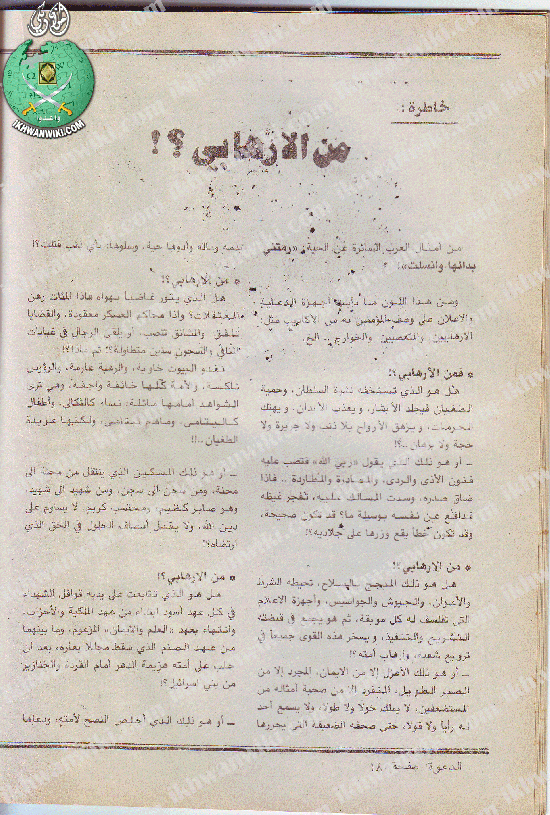 خاطرة :
من الارهابي ؟!
من امثال العرب السائرة عن الحية: «رمتني
بدائها وانسلت»!
ومن هذا اللون ما دأبت اجهزة الدعاية
والاعلان على وصف المؤمنين به من الاكاذيب مثل:
الارهابيين والمتعصبين والخوارج .. الخ.
* فمن الارهابي؟!
هل هو الذي تستخفه نشوة السلطان، وحمية
الطغيان فيجلد الأبشار، ويعذب الأبدان، ويهتك
الحرمات، ويزهق الأرواح بلا ذنب ولا جريرة ولا
حجة ولا برهان ..؟!
ـ أو هو ذلك الذي يقول «ربي الله» فتصب عليه
فنون الأذى والردى، والمصادرة والمطاردة .. فاذا
ضاق صدره، وسدت المسالك عليه، تفجر غيظه
تدافع عن نفسه بوسيلة ما؟ قد تكون صحيحة،
وقد تكون خطأ يقع وزرها على جلاديه؟!
* من الارهابي؟!
هل هو ذلك المدجج بالسلاح، تحيطه الشرط
والأعوان، والجيوش والجواسيس، وأجهزة الاعلام
التي تفلسف له كل موبقة، ثم هو يجمع في قبضته
التشريع والتنفيذ، ويسخر هذه القوى جميعا في
ترويع شعبه، وإرهاب أمته؟
ـ أو هو ذلك الأعزل إلا من الايمان، المجرد إلا من
الصبر الطويل، المنفرد إلا من صحبة أمثاله من
المستضعفين، لا يملك حولا ولا طولا، ولا يسمع أحد
له رأيا ولا قولا، حتى صحفه الضعيفة التي يحررها
بدمه وماله وأدوها حية، وسلوها: بأي ذنب قتلت؟!
* من الارهابي؟!
هل الذي يثور غاضبا لسواه فاذا المئات رهن
المعتقلات؟ واذا محاكم العسكر معقودة، والقضايا
تلفق، والمشانق تنصب، أو يلقى الرجال في غيابات
المنافي والسجون سنين متطاولة؟ ثم ماذا؟!
تغدو البيوت خاوية، والرهبة عارمة، والرؤوس
ناكسة، والأمة كلها خائفة واجفة، وهي ترى
الشواهد أمامها ماثلة، نساء كالثكالى، وأطفال
كاليتامى، ومآدم تتلاقى، ولكنها عربدة
الطغيان ..!!
ـ أو هو ذلك المسكين الذي ينتقل من محنة الى
محنة، ومن سجن الى سجن، ومن شهيد الى شهيد،
وهو صابر كظيم، ومحتسب كريم، لا يساوم على
دين الله، ولا يقبل أنصاف الحلول في الحق الذي
ارتضاه؟
* من الارهابي؟!
هل هو الذي تتابعت على يديه قوافل الشهداء
في كل عهد أسود ابتداء من عهد الملكية والأحزاب،
وانتهاء بعهد «العلم والايمان» المزعوم، وما بينهما
من عهد الصنم الذي سقط مجللا بعاره، بعد أن
جلب على أمته هزيمة الدهر أمام القردة والخنازير
من بني اسرائيل؟!
ـ أو هو ذلك الذي أخلص النصح لأمته، ودعاها
الدعوة صفحة ١٨٠
ikhwanwiki.com